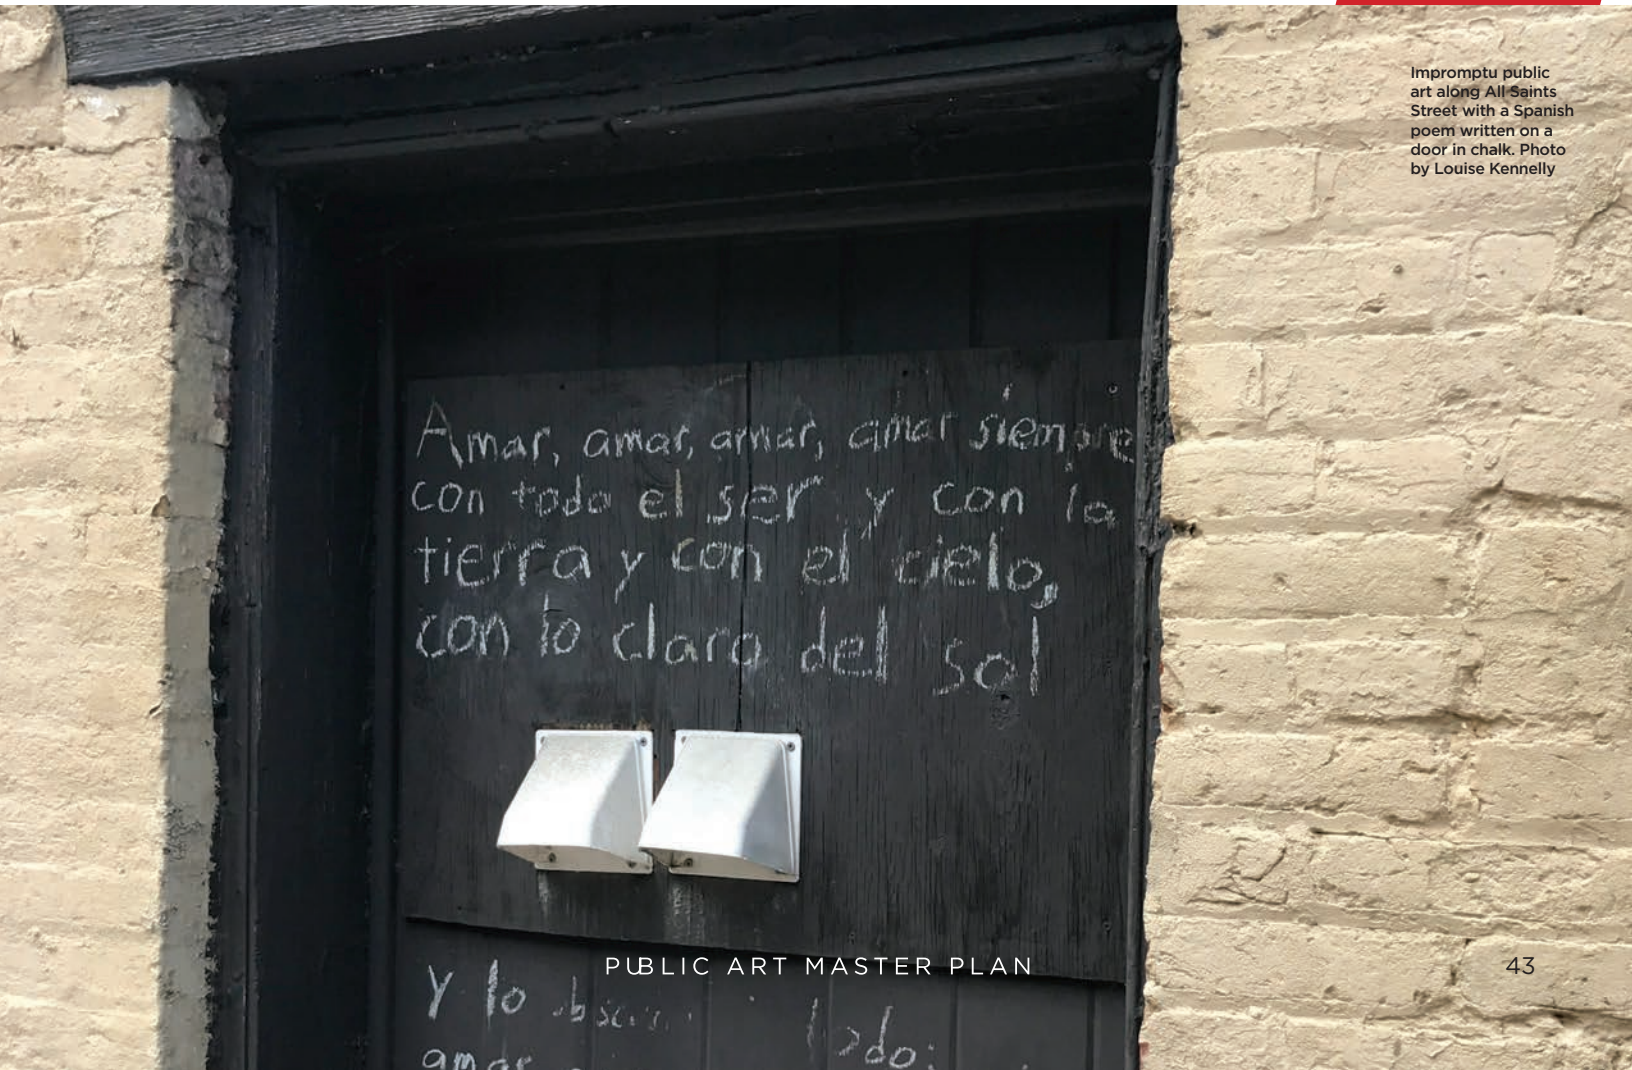 Impromptu public
art along All Saints
Street with a Spanish
poem written on a
door in chalk. Photo
by Louise Kennelly
Amar, amar, amar, amar siempre
con todo el ser y con la
tierra y con el cielo,
con lo claro del sol
PUBLIC ART MASTER PLAN
43
Y lo
amar